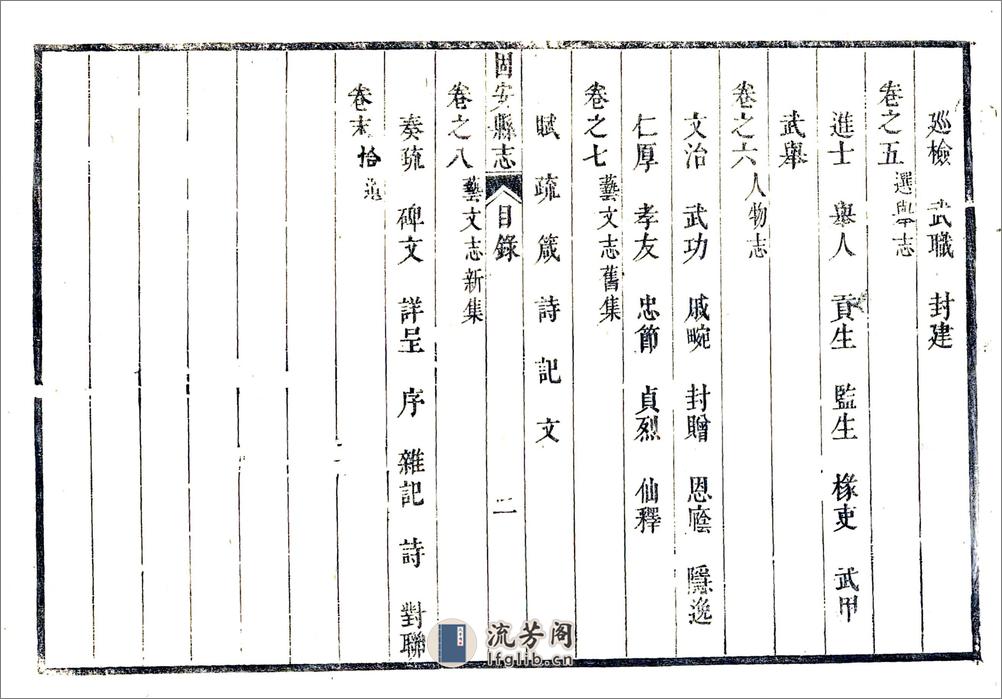 廵檢 武職 封建
卷之五 選舉志
進士 舉人 貢生 監生 椽吏 武甲
武舉
卷之六 人物志
文治 武功 戚畹 封贈 恩廕 隱逸
仁厚 孝友 忠節 貞烈 仙釋
卷之七 藝文志舊集
賦 疏 箴 詩 記 文
固安縣志 目錄 二
卷之八 藝文志新集
奏疏 碑文 詳呈 序 雜記 詩 對聯
卷末 拾遺
流芳阁
lfglib.cn